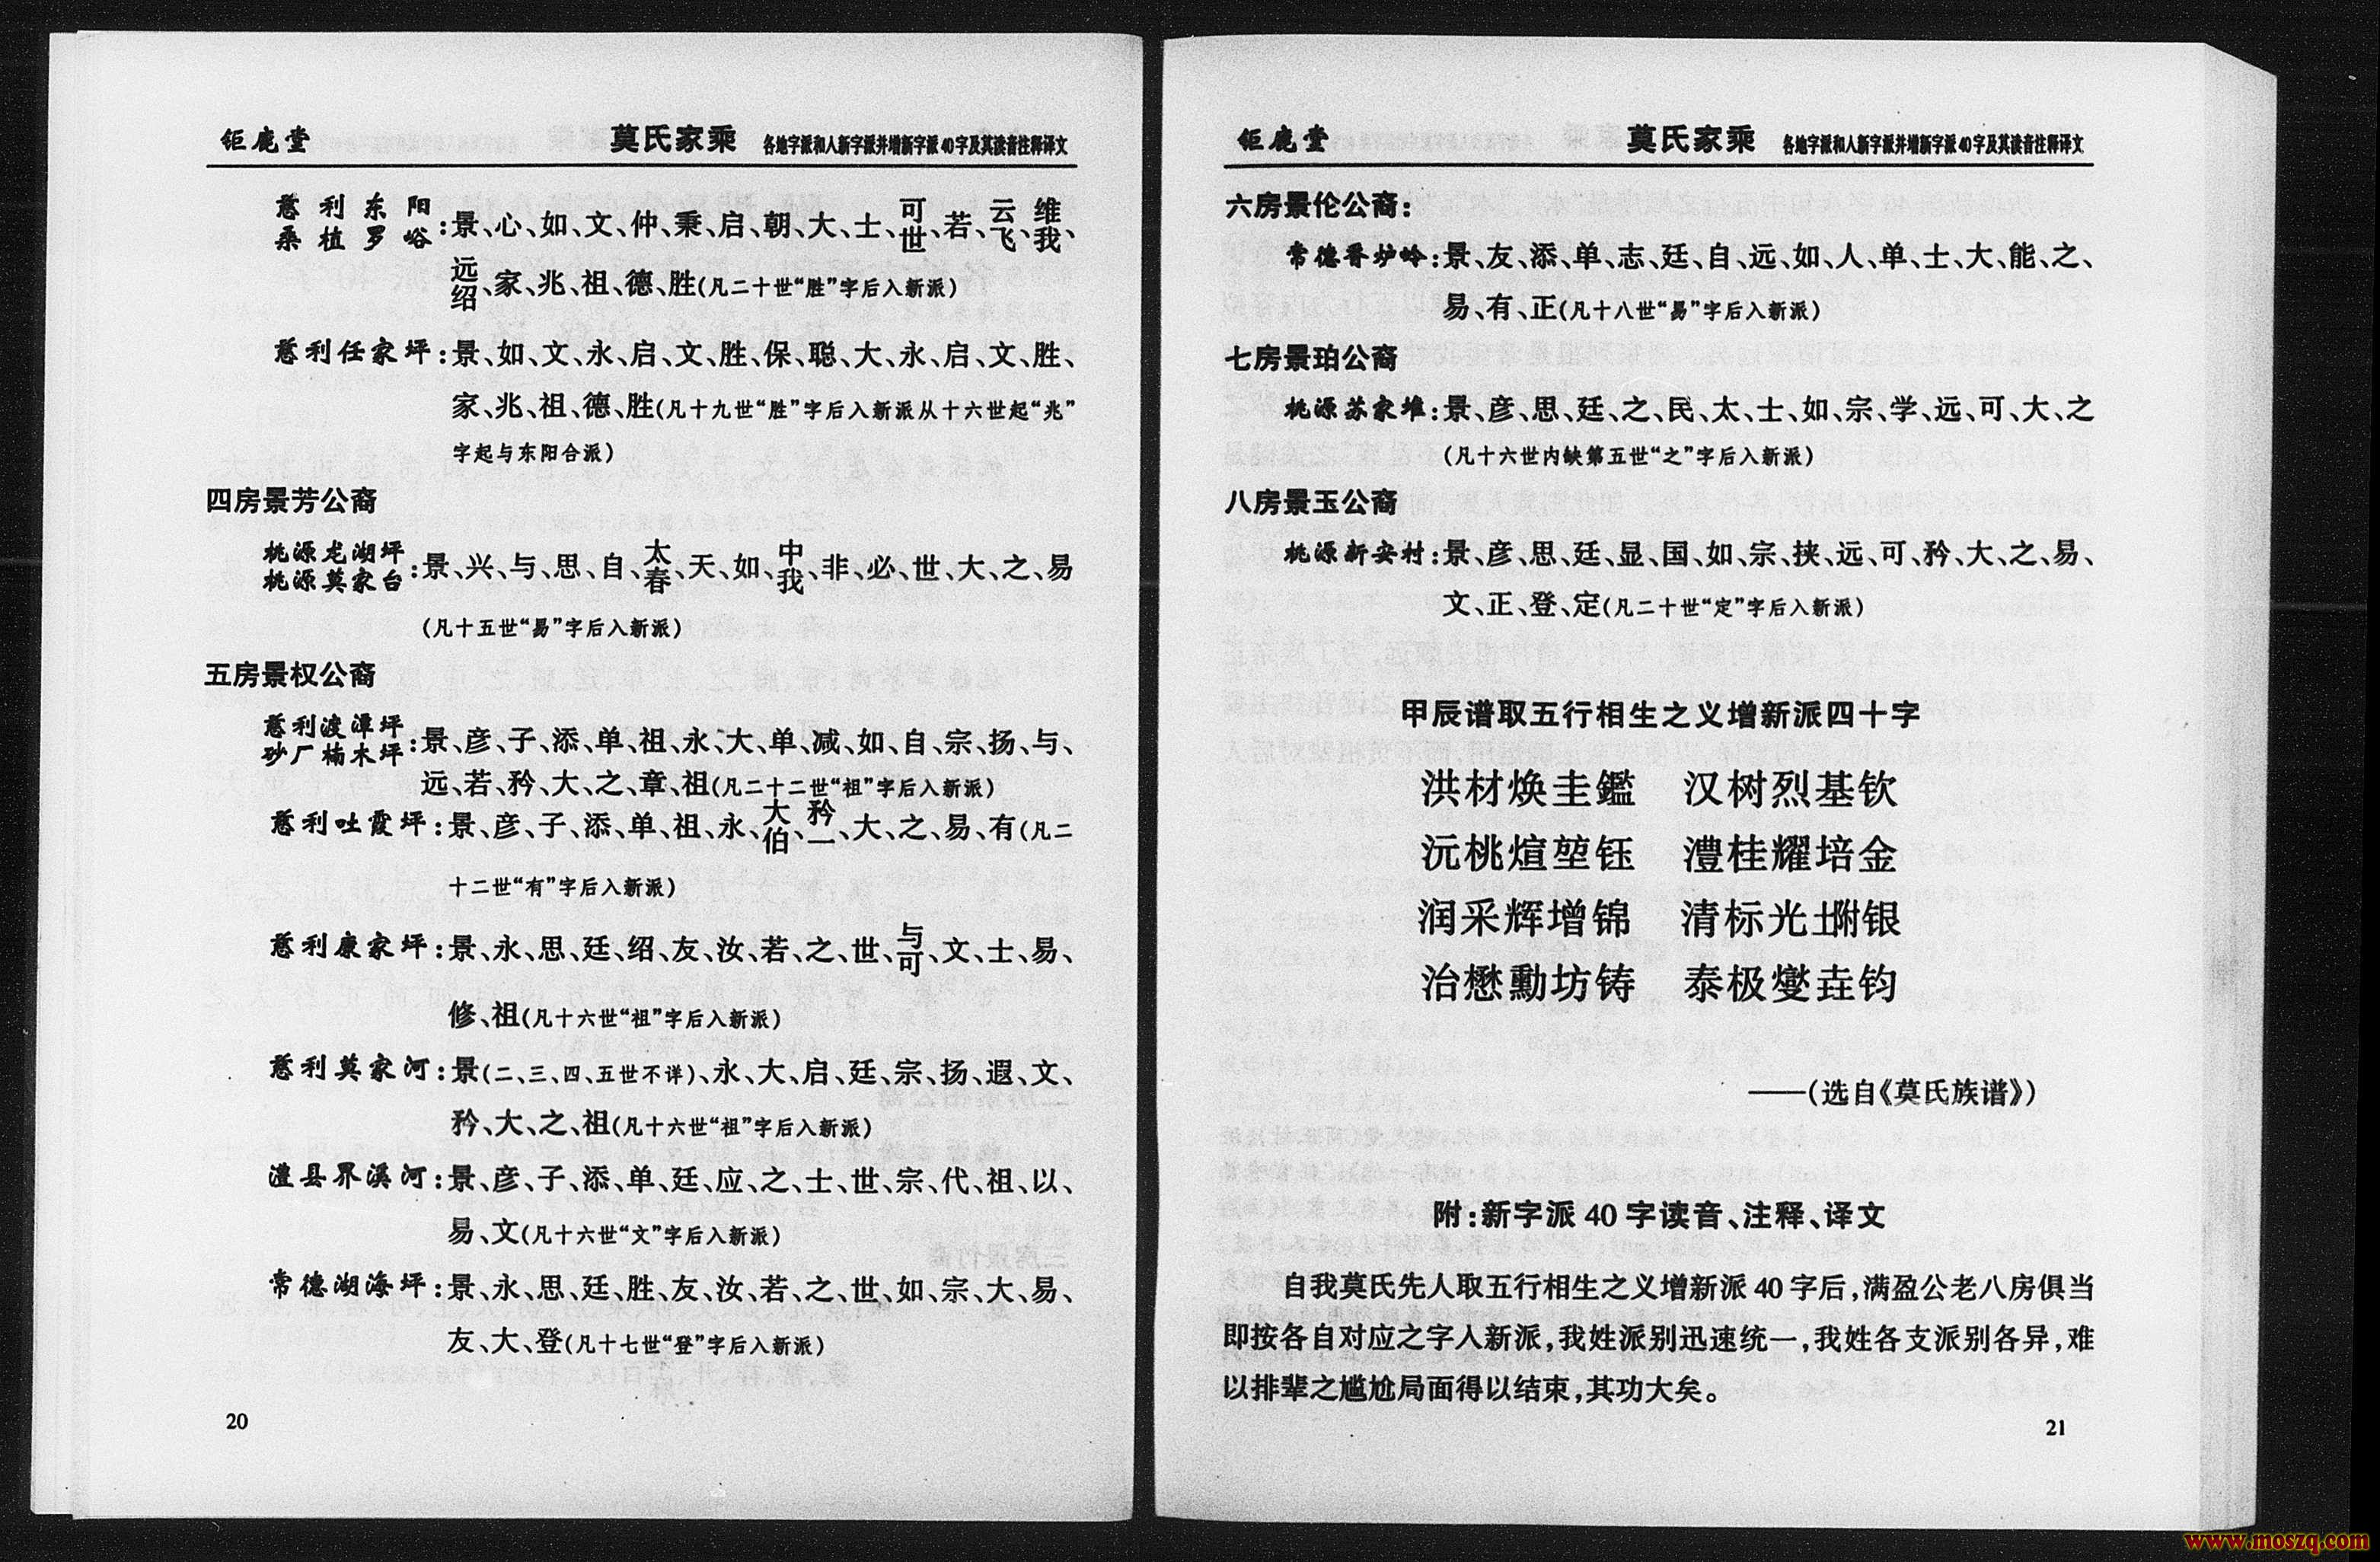 钜鹿堂 莫氏家乘 各地字派和人新字派并增新字派40字及其读音注释译文
慈利东阳
桑植罗峪
:景、心、如、文、仲、秉、启、朝、大、士、可世、若、云飞、维我、
远绍、家、兆、祖、德、胜(凡二十世“胜”字后入新派)
慈利任家坪:景、如、文、永、启、文、胜、保、聪、大、永、启、文、胜、
家、兆、祖、德、胜(凡十九世“胜”字后入新派从十六世起“兆”
字起与东阳合派)
四房景芳公裔
桃源龙湖坪
桃源莫家台
:景、兴、与、思、自、太春、天、如、中我、非、必、世、大、之、易
(凡十五世“易”字后入新派)
五房景权公裔
慈利渡潭坪
砂厂楠木坪
:景、彦、子、添、单、祖、永、大、单、减、如、自、宗、扬、与、
远、若、矜、大、之、章、祖(凡二十二世“祖”字后入新派)
慈利吐霞坪:景、彦、子、添、单、祖、永、大伯、矜一、大、之、易、有(凡二
十二世“有”字后入新派)
慈利康家坪:景、永、思、廷、绍、友、汝、若、之、世、与可、文、士、易、
修、祖(凡十六世“祖”字后入新派)
慈利莫家河:景(二、三、四、五世不详)、永、大、启、廷、宗、扬、遐、文、
矜、大、之、祖(凡十六世“祖”字后入新派)
澧县界溪河:景、彦、子、添、单、廷、应、之、士、世、宗、代、祖、以、
易、文(凡十六世“文”字后入新派)
常德湖海坪:景、永、思、廷、胜、友、汝、若、之、世、如、宗、大、易、
友、大、登(凡十七世“登”字后入新派)
20
钜鹿堂 莫氏家乘 各地字派和人新字派并增新字派40字及其读音注释译文
六房景伦公裔:
常德香炉岭:景、友、添、单、志、廷、自、远、如、人、单、士、大、能、之、
易、有、正(凡十八世“易”字后入新派)
七房景珀公裔
桃源苏家堆:景、彦、思、廷、之、民、太、士、如、宗、学、远、可、大、之
(凡十六世内缺第五世“之”字后入新派)
八房景玉公裔
桃源新安村:景、彦、思、廷、显、国、如、宗、挟、远、可、矜、大、之、易、
文、正、登、定(凡二十世“定”字后入新派)
甲辰谱取五行相生之义增新派四十字
洪材焕圭鑑 汉树烈基钦
沅桃煊堃钰 澧桂耀培金
润采辉增锦 清标光土附银
治懋勳坊铸 泰极燮垚钧
——(选自《莫氏族谱》)
附:新字派40字读音、注释、译文
自我莫氏先人取五行相生之义增新派40字后,满盈公老八房俱当
即按各自对应之字人新派,我姓派别迅速统一,我姓各支派别各异,难
以排辈之尴尬局面得以结束,其功大矣。
21
www.moszq.com